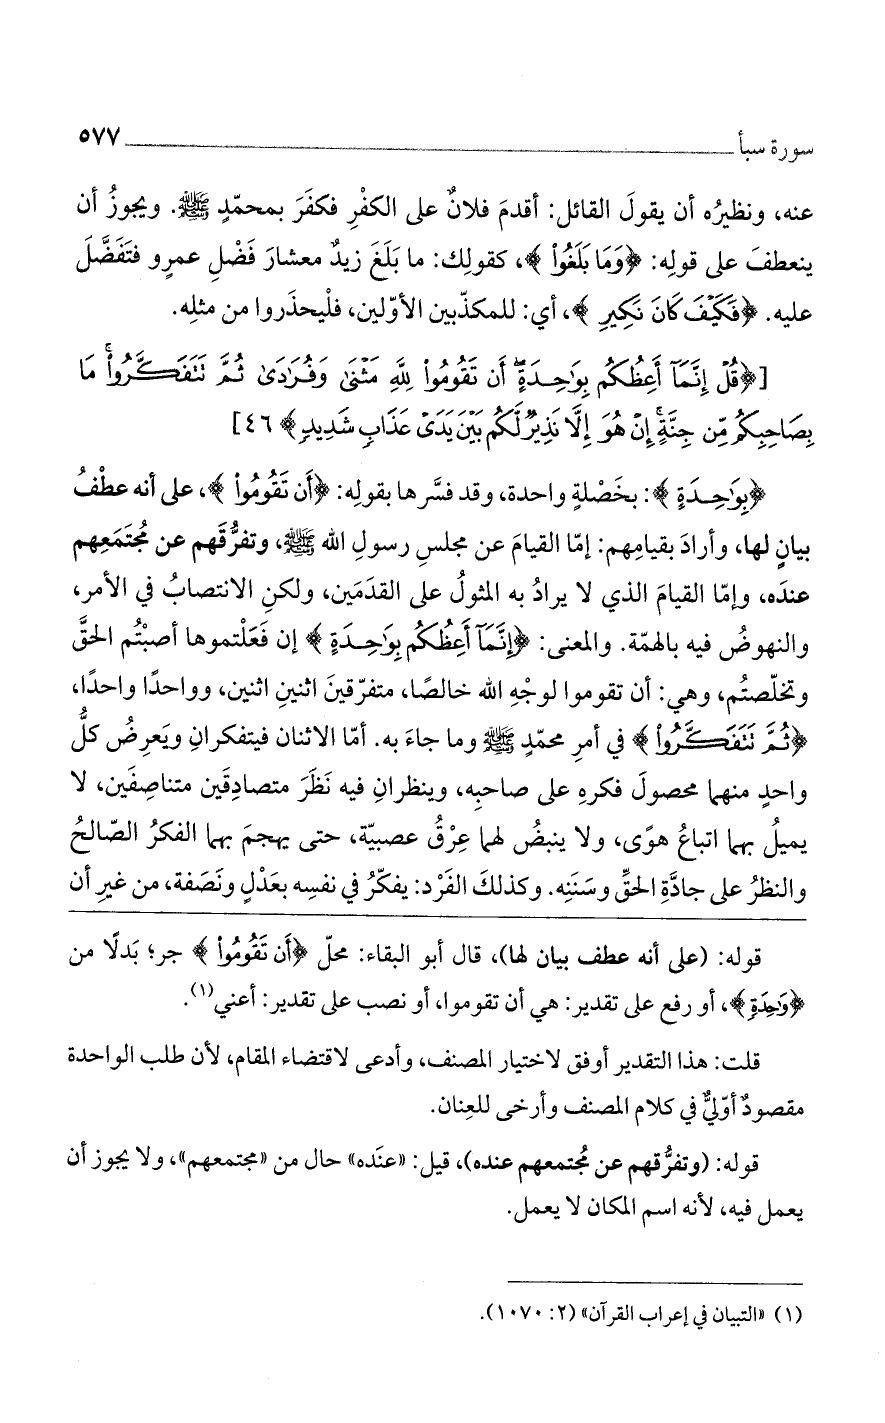 سورة سبأ ٥٧٧
عنه، ونظيرُه أن يقولَ القائل: أقدمَ فلانٌ على الكفْرِ فكفَرَ بمحمّدٍ ﷺ. ويجوزُ أن
ينعطفَ على قولِه: ﴿وَمَا بَلَغُواْ﴾، كقولِك: ما بَلَغَ زيدٌ معشارَ فَضْلِ عمرٍو فتَفَضَّلَ
عليه. ﴿فَكَيْفَ كَانَ نَكِيرِ﴾، أي: للمكذّبين الأوّلين، فلْيحذَروا من مثلِه.
[﴿قُلْ إِنَّمَآ أَعِظُكُم بِوَٰحِدَةٍ ۖ أَن تَقُومُواْ لِلَّهِ مَثْنَىٰ وَفُرَٰدَىٰ ثُمَّ تَتَفَكَّرُواْ ۚ مَا
بِصَاحِبِكُم مِّن جِنَّةٍ ۚ إِنْ هُوَ إِلَّا نَذِيرٌ لَّكُم بَيْنَ يَدَىْ عَذَابٍ شَدِيدٍ﴾ ٤٦]
﴿بِوَٰحِدَةٍ﴾: بخَصْلةٍ واحدة، وقد فسَّرها بقولِه: ﴿أَن تَقُومُواْ﴾، على أنه عطْفُ
بيانٍ لها، وأرادَ بقيامِهم: إمّا القيامَ عن مجلسِ رسولِ الله ﷺ، وتفرُّقَهم عن مُجتَمَعِهم
عندَه، وإمّا القيامَ الذي لا يرادُ به المثولُ على القدَمَين، ولكنِ الانتصابُ في الأمر،
والنهوضُ فيه بالهمّة. والمعنى: ﴿إِنَّمَآ أَعِظُكُم بِوَٰحِدَةٍ﴾ إن فَعَلْتموها أصبْتُم الحقَّ
وتخلّصتُم، وهي: أن تقوموا لوجْهِ الله خالصًا، متفرّقينَ اثنينِ اثنين، وواحدًا واحدًا،
﴿ثُمَّ تَتَفَكَّرُواْ﴾ في أمرِ محمّدٍ ﷺ وما جاءَ به. أمّا الاثنان فيتفكرانِ ويَعرِضُ كلُّ
واحدٍ منهما محصولَ فكرهِ على صاحبِه، وينظرانِ فيه نَظَرَ متصادِقَين متناصِفَين، لا
يميلُ بهما اتباعُ هوًى، ولا ينبضُ لهما عِرْقُ عصبيّة، حتى يهجمَ بهما الفكرُ الصّالحُ
والنظرُ على جادَّةِ الحقِّ وسَنَنِه. وكذلكَ الفَرْد: يفكّرُ في نفسِه بعَدْلٍ ونَصَفة، من غيرِ أن
قوله: (على أنه عطف بيان لها)، قال أبو البقاء: محلّ ﴿أَن تَقُومُواْ﴾ جر؛ بَدلًا من
﴿وَٰحِدَةٍ﴾، أو رفع على تقدير: هي أن تقوموا، أو نصب على تقدير: أعني(١).
قلت: هذا التقدير أوفق لاختيار المصنف، وأدعى لاقتضاء المقام، لأن طلب الواحدة
مقصودٌ أوّليٌّ في كلام المصنف وأرخى للعِنان.
قوله: (وتفرُّقهم عن مُجتمعهم عنده)، قيل: «عنَده» حال من «مجتمعهم»، ولا يجوز أن
يعمل فيه، لأنه اسم المكان لا يعمل.
(١) «التبيان في إعراب القرآن» (٢: ١٠٧٠).